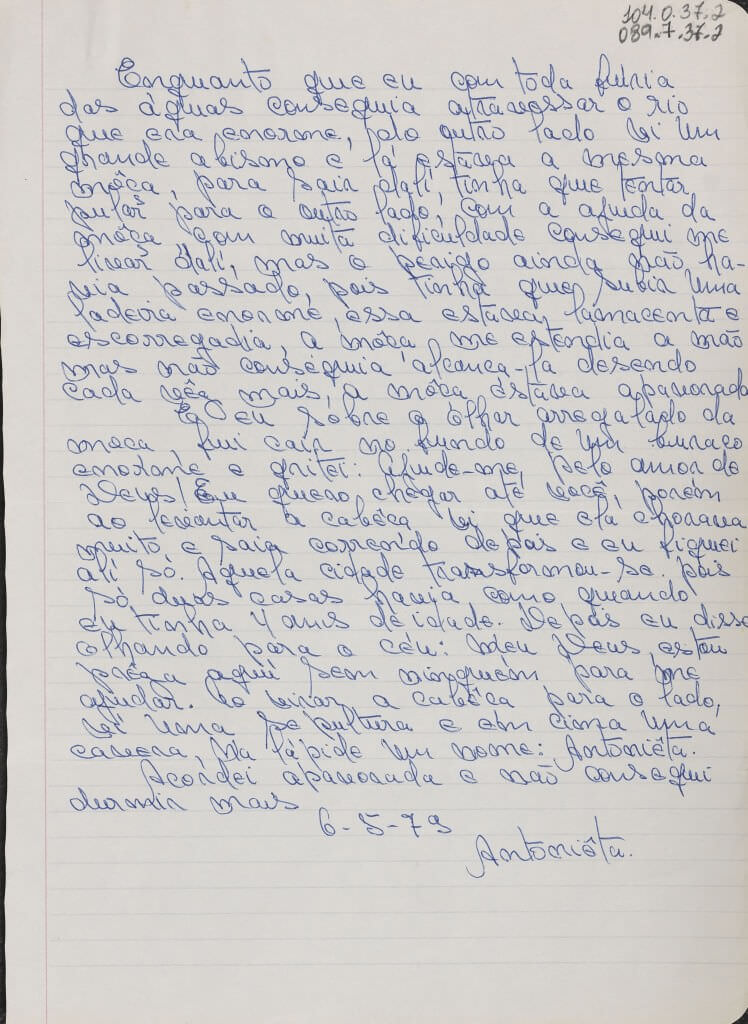 104.0.37.2
089.7.37.2
Enquanto que eu com toda fúria
das águas conseguia atravessar o rio
que era enorme, do outro lado vi um
grande abismo e lá estava a mesma
môça, para sair dali, tinha que tentar
pular para o outro lado, com a ajuda da
môça, com muita dificuldade consegui me
livrar dali, mas o perigo ainda não ha-
via passado, pois tinha que subir uma
ladeira enorme, essa estava lamacenta e
escorregadia, a môça, me estendia a mão
mas não conseguia alcança-la desendo
cada vêz mais, a môça estava apavorada
Eq eu sôbre o olhar arregalado da
moça, fui cair no fundo de um buraco
enorme e gritei: Ajude-me, pelo amor de
Deus! Eu quero chegar até você, porém
ao levantar a cabêça vi que ela chorava
muito e saia correndo depois e eu fiquei
ali só. Aquela cidade transformou-se pois
só duas casas havia como quando
eu tinha 4 anos de idade. Depois eu disse
olhando para o céu: meu Deus estou
prêsa aqui sem ninguém para me
ajudar. Ao virar a cabêça para o lado,
vi uma sepultura e em cima uma
caveira, na lápide um nome: Antoniêta.
Acordei apavorada e não consegui
durmir mais
6-5-79
Antoniêta.